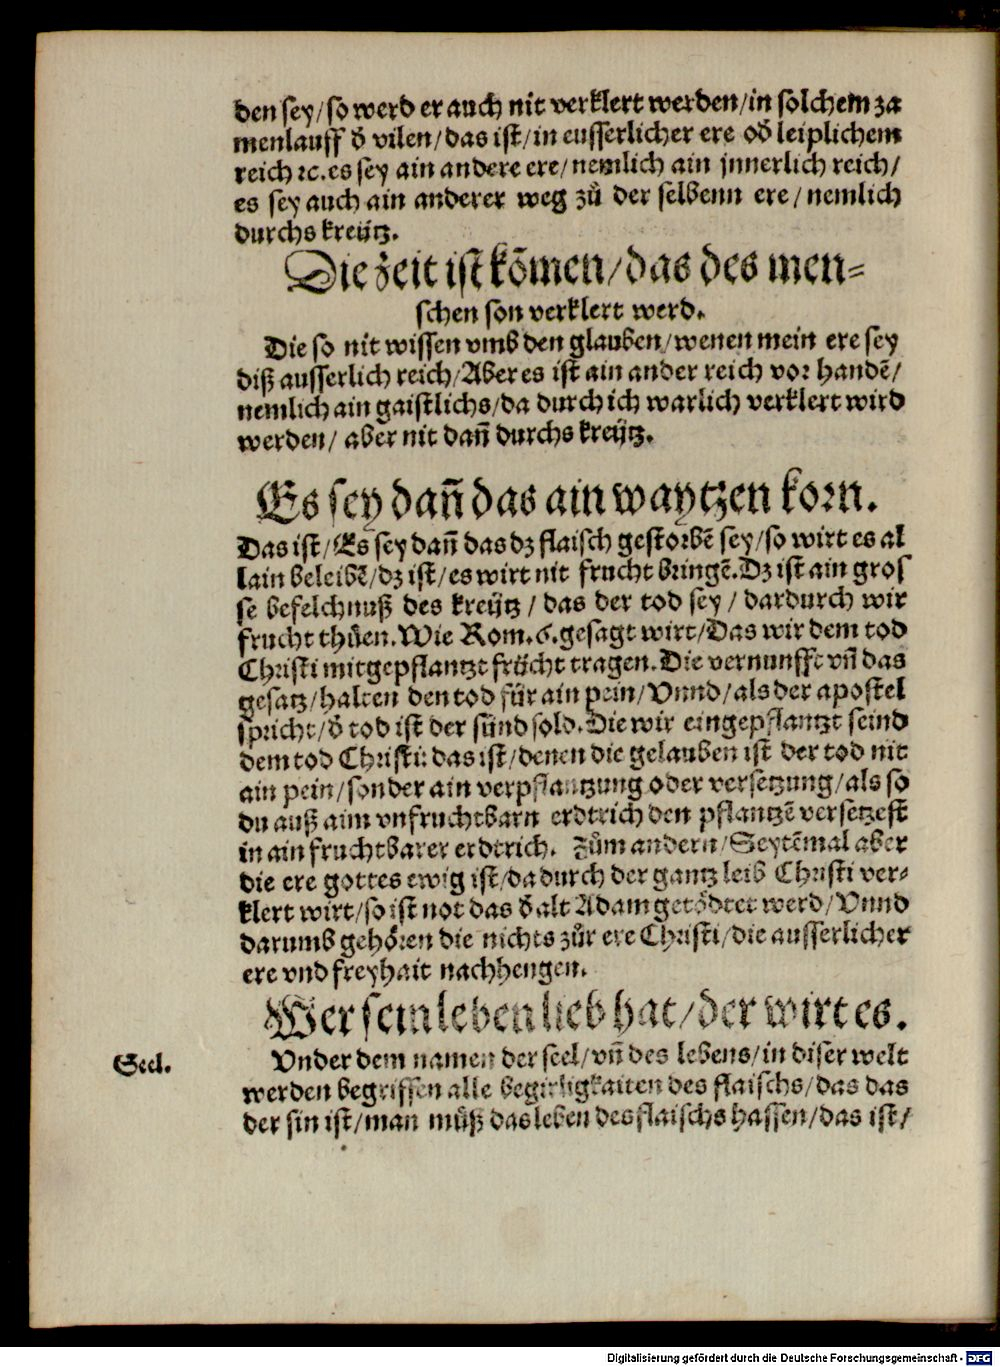 den sey/so werd er auch nit verklert werden/in solchem za
menlauff d̄ vilen/das ist/in eusserlicher ere od̄ leiplichem
reich ꝛc. es sey ain andere ere/nemlich ain jnnerlich reich/
es sey auch ain anderer weg zů der selbenn ere/nemlich
durchs kreütz.
Die zeit ist kõmen/das des men⸗
schen son verklert werd.
Die so nit wissen vmb den glauben/wenen mein ere sey
diß ausserlich reich/Aber es ist ain ander reich vor handẽ/
nemlich ain gaistlichs/da durch ich warlich verklert wird
werden/ aber nit dañ durchs kreütz.
Es sey dañ das ain waytzen korn.
Das ist/Es sey dañ das dz flaisch gestorbẽ sey/so wirt es al
lain beleibẽ/dz ist/es wirt nit frucht bringẽ. Dz ist ain gros
se befelchnuß des kreütz/das der tod sey/dardurch wir
frucht thůen. Wie Rom. 6. gesagt wirt/Das wir dem tod
Christi mitgepflantzt frücht tragen. Die vernunfft vñ das
gesatz/halten den tod für ain pein/Vnnd/als der apostel
spricht/d̄ tod ist der sünd sold. Die wir eingepflantzt seind
dem tod Christi: das ist/denen die gelauben ist der tod nit
ain pein/sonder ain verpflantzung oder versetzung/als so
du auß aim vnfruchtbarn erdtrich den pflantzẽ versetzest
in ain fruchtbarer erdtrich. Zům andern/Seytẽmal aber
die ere gottes ewig ist/da durch der gantz leib Christi ver⸗
klert wirt/so ist not das d̄ alt Adam getödtet werd/Vnnd
darumb gehören die nichts zůr ere Christi/die ausserlicher
ere vnd freyhait nachhengen.
Wer sein leben lieb hat/der wirt es.
Seel.
Vnder dem namen der seel/vñ des lebens/in diser welt
werden begriffen alle begirligkaiten des flaischs/das das
der sin ist/man můß das leben des flaischs hassen/das ist/
Digitalisierung gefördert durch die Deutsche Forschungsgemeinschaft - DFG